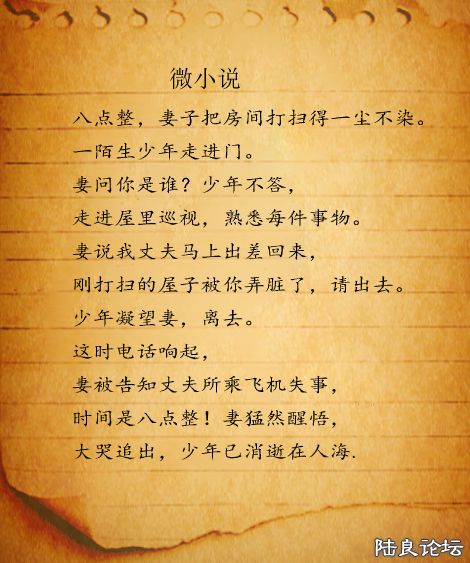 微小说
八点整，妻子把房间打扫得一尘不染。
一陌生少年走进门。
妻问你是谁？少年不答，
走进屋里巡视，熟悉每件事物。
妻说我丈夫马上出差回来，
刚打扫的屋子被你弄脏了，请出去。
少年凝望妻，离去。
这时电话响起，
妻被告知丈夫所乘飞机失事，
时间是八点整！妻猛然醒悟，
大哭追出，少年已消逝在人海.
陆良论坛